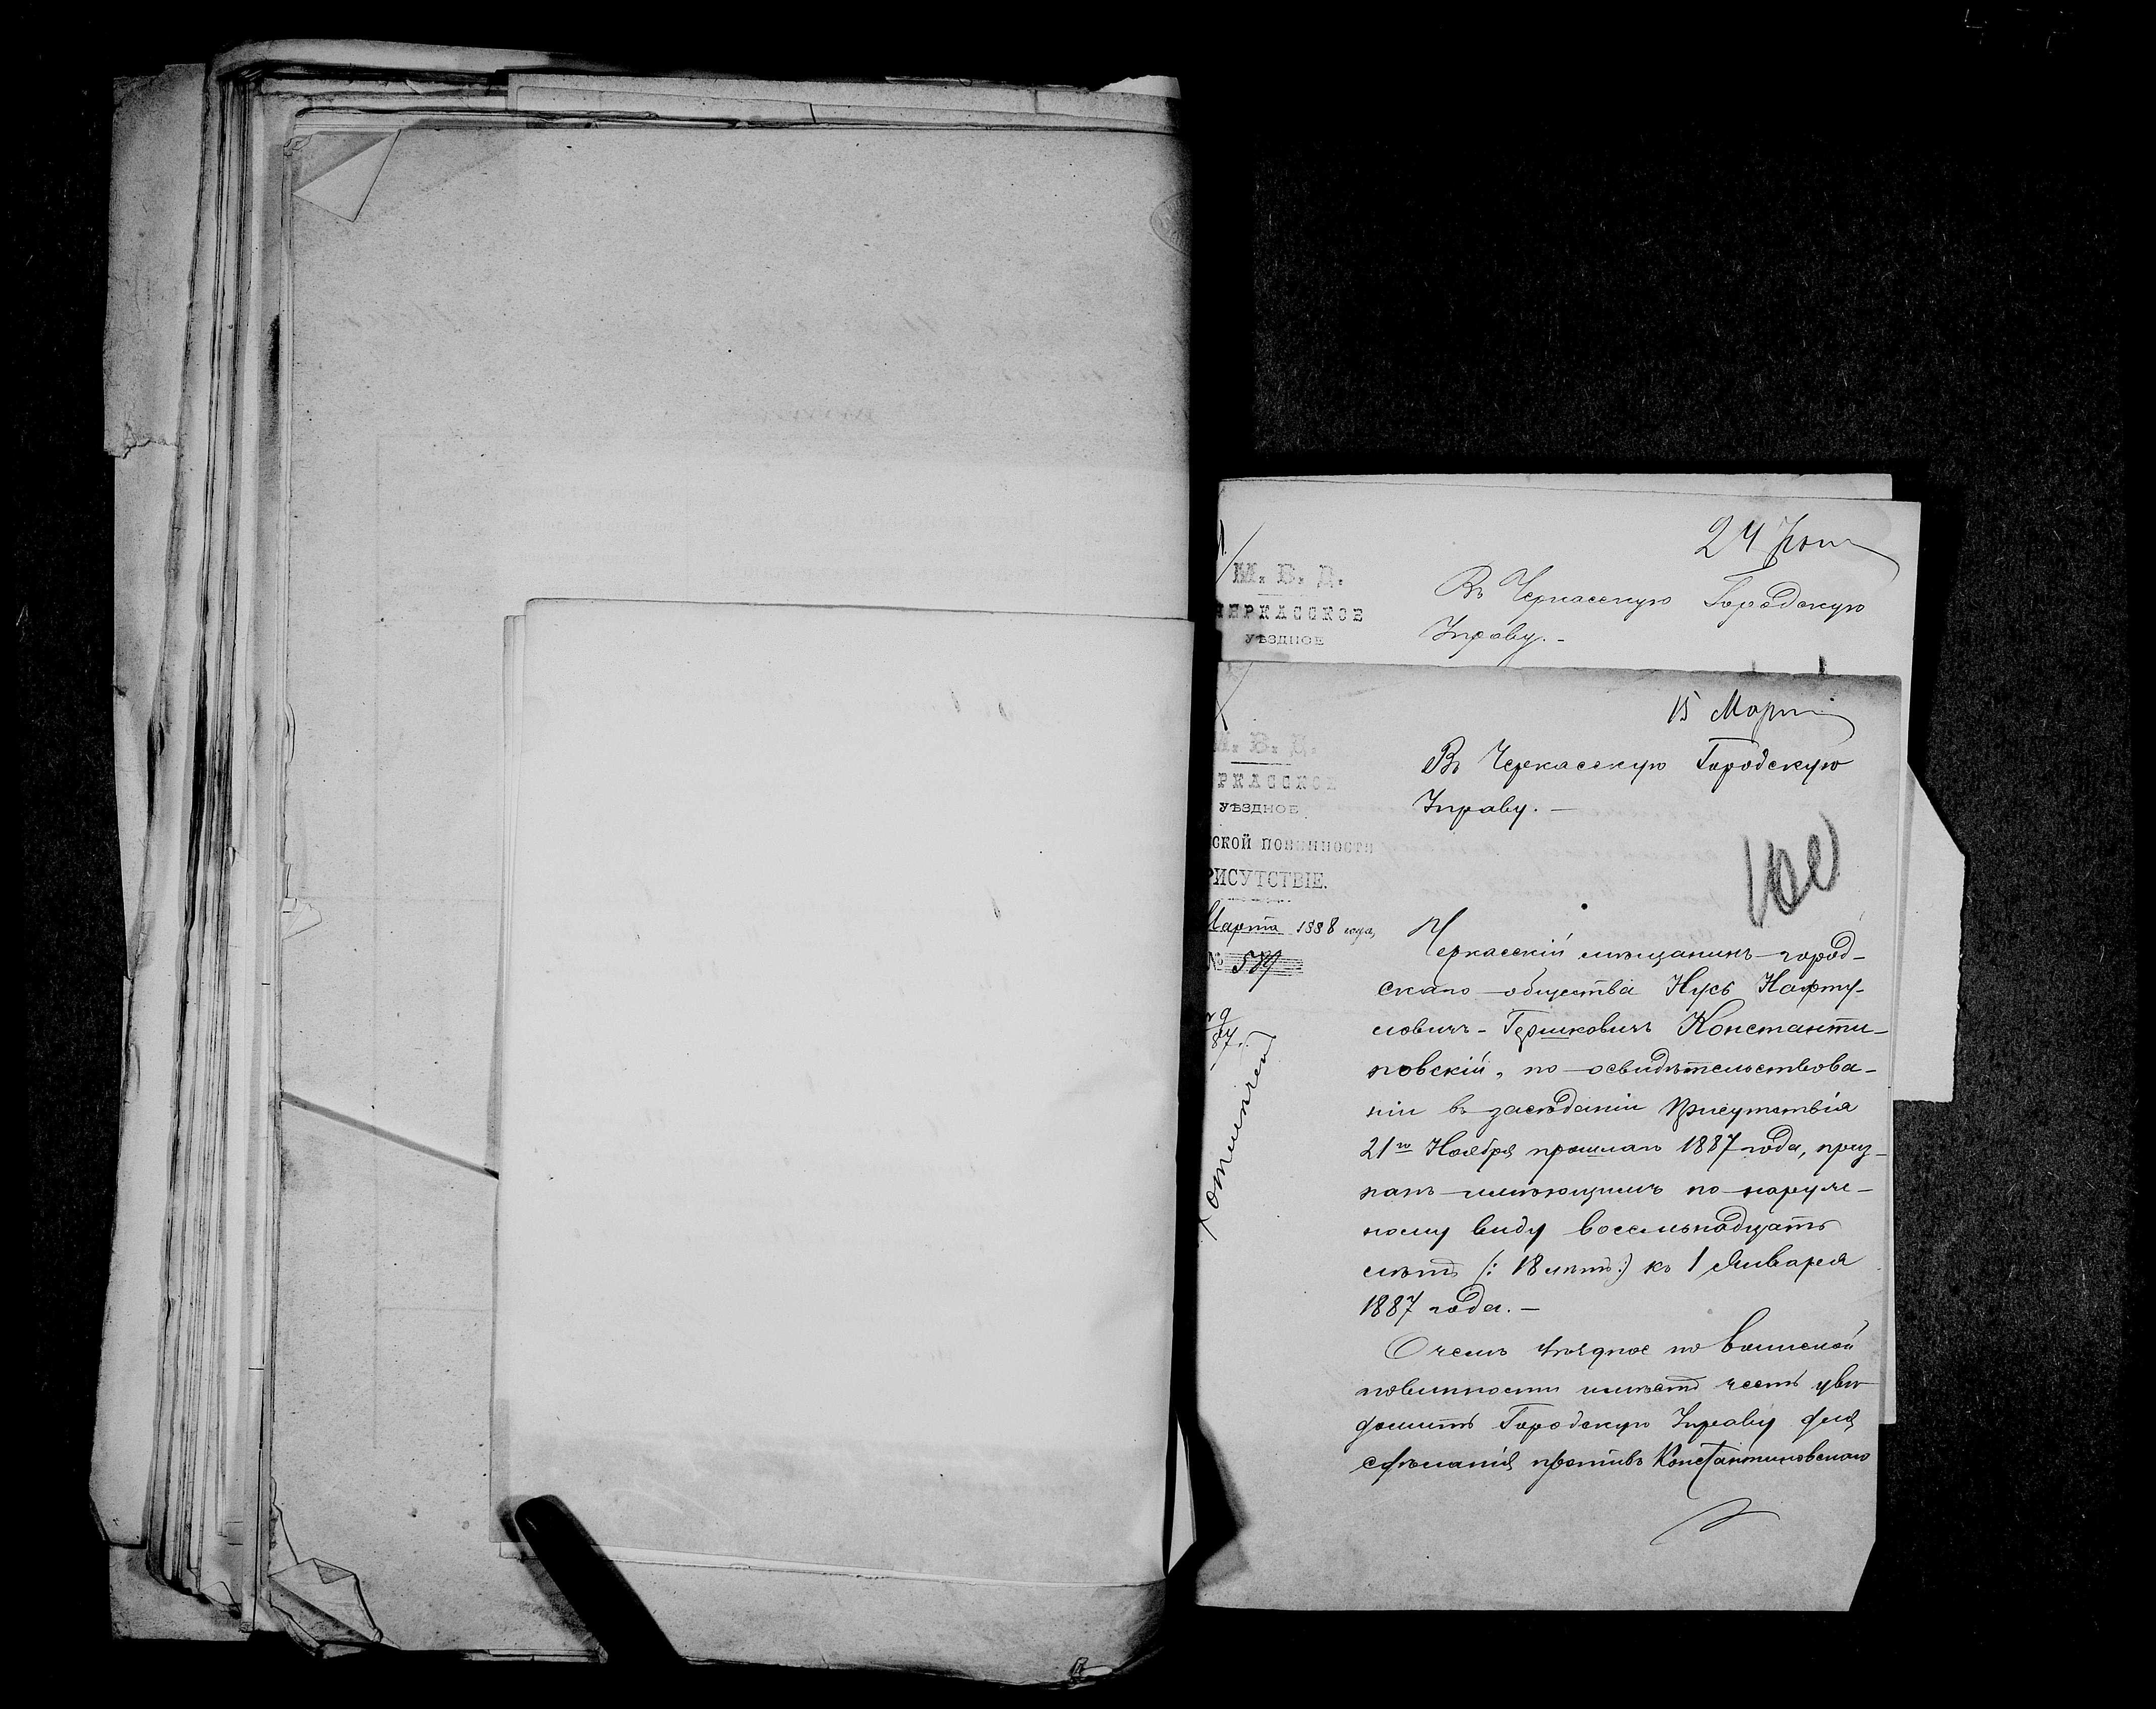 24 Июн
М. В. Д.
ЧЕРКАССКОЕ
УѢЗДНОЕ
Въ Черкасскую Городскую
Управу. -
15 Март
М. В. Д.
РКАССКОЕ
УѢЗДНОЕ
СКОЙ ПОВИННОСТИ
РИСУТСТВІЕ.
Марта 1888 года,
№ 589
87 г.
отмѣтчен
Въ Черкасскую Городскую
Управу. —
100
Черкасскій мѣщанинъ город-
скаго общества Нусь Нафту-
ловичъ-Гершковичъ Константи-
новскій, по освидѣтельствова-
ніи въ засѣданіи Присутствія
21го Ноября прошлаго 1887 года, приз-
нанъ имѣющимъ по наруж-
ному виду восемьнадцать
лѣтъ /: 18 лѣтъ :/ къ 1 Января
1887 года. —
О чемъ Уѣздное по воинской
повинности имѣетъ честь увѣ-
домить Городскую Управу для
сдѣланія противъ Константиновскаго